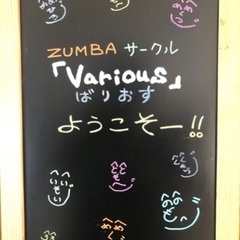 ZUMBA サークル
「Various」
ばりおす
ようこそー!!